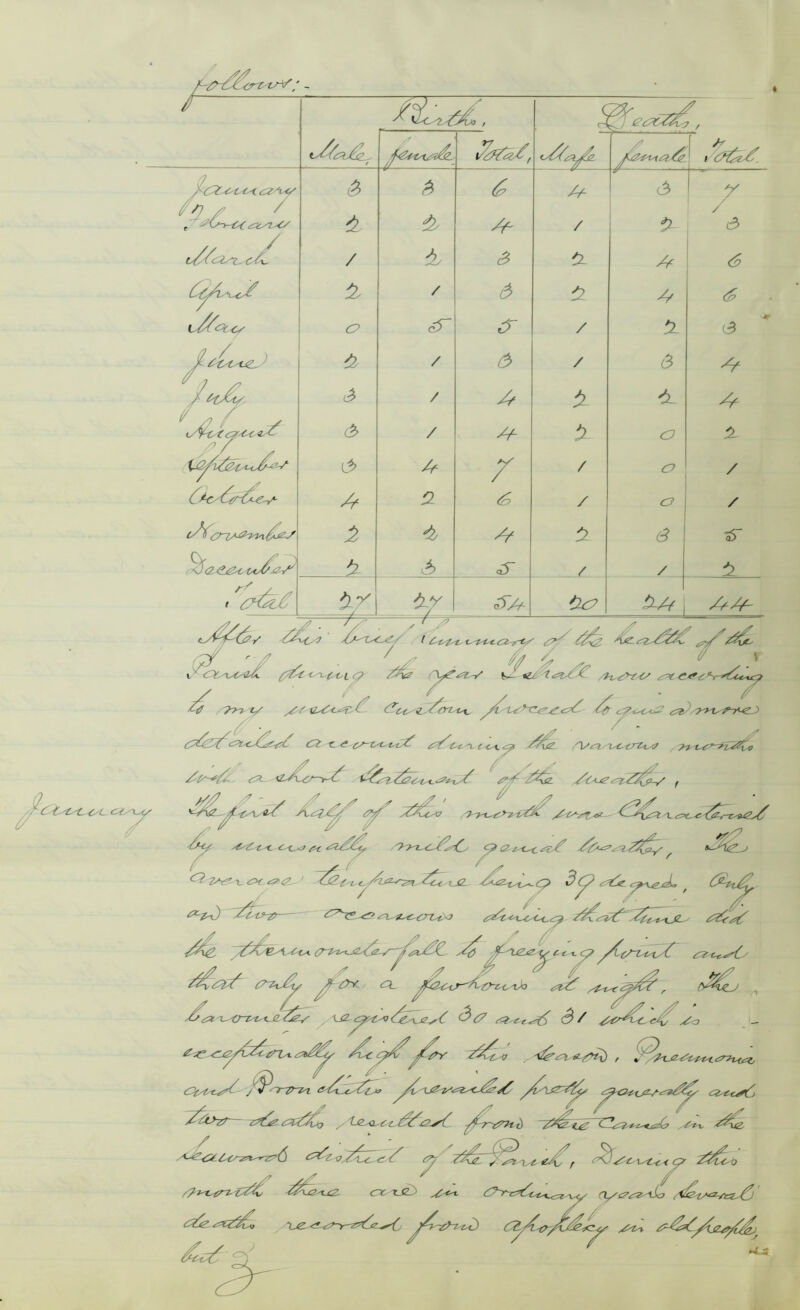 follows:-
Births, Deaths,
Male, female Total, Male female Total.
January 3 3 6 4 3 7
February 2 2 4 1 2 3
March 1 2 3 2 4 6
April 2 1 3 2 4 6
May 0 5 5 1 2 3
June 2 1 3 1 3 4
July 3 1 4 2 2 4
August 3 1 4 2 0 2
September 3 4 7 1 0 1
October 4 2 6 1 0 1
November 2 2 4 2 3 5
December 2 3 5 1 1 2
Total 27 27 54 20 24 44
After this brief summary of the health of the
Parish during the year I shall now according
to my usual Custom proceed to give a more
detailed account during the various months
with a short Statement of the weather,
January The first half of this month was Characterised
by unusually mild genial weather, The
average temperature being 39 degrees, Only
on two occasions during that time did
the thermometer fall to freezing point and
that only for a few hours at night, The
barometer registered 30 and 31 which is
exceptionally high for this season, Pneumonia
and Bronchitis prevailed pretty generally and
two deaths resulted from these Causes in the
seaward district of the Parish, During this
month there are in Ordinary years several
deaths recorded from apoplexy in old people,
but